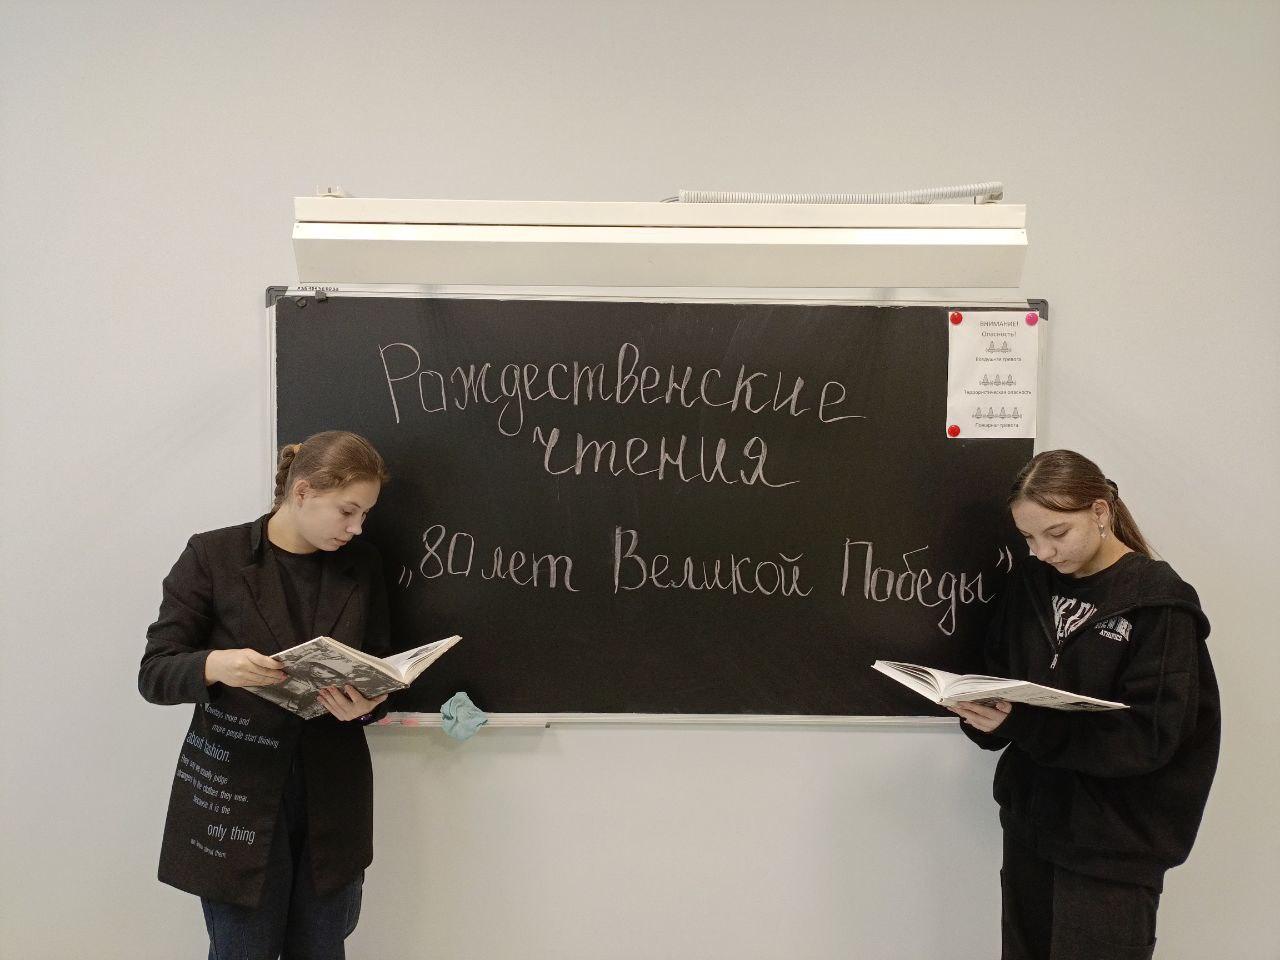 Рождественские
чтения
„80 лет Великой Победы”
ВНИМАНИЕ!
Опасность!
Воздушная тревога
Террористическая опасность
Пожарная тревога
more and
more people start thinking
about fashion.
They say we usually judge
strangers by the clothes they wear,
because it is the
only thing
we know about them
ATHLETICS